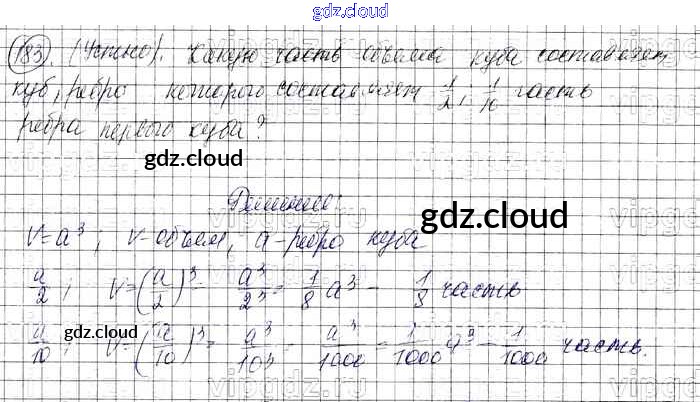 gdz.cloud
183. (Устно). Какую часть объема куба составляет
куб, ребро которого составляет 1/2, 1/10 часть
ребра первого куба?
gdz.cloud
Решение:
gdz.cloud
V=a³; V-объем, a-ребро куба
a/2; V=(a/2)³= a³/2³= 1/8 a³ - 1/8 часть
a/10; V=(a/10)³= a³/10³= a³/1000 = 1/1000 a³ - 1/1000 часть.
gdz.cloud
vipgdz.ru